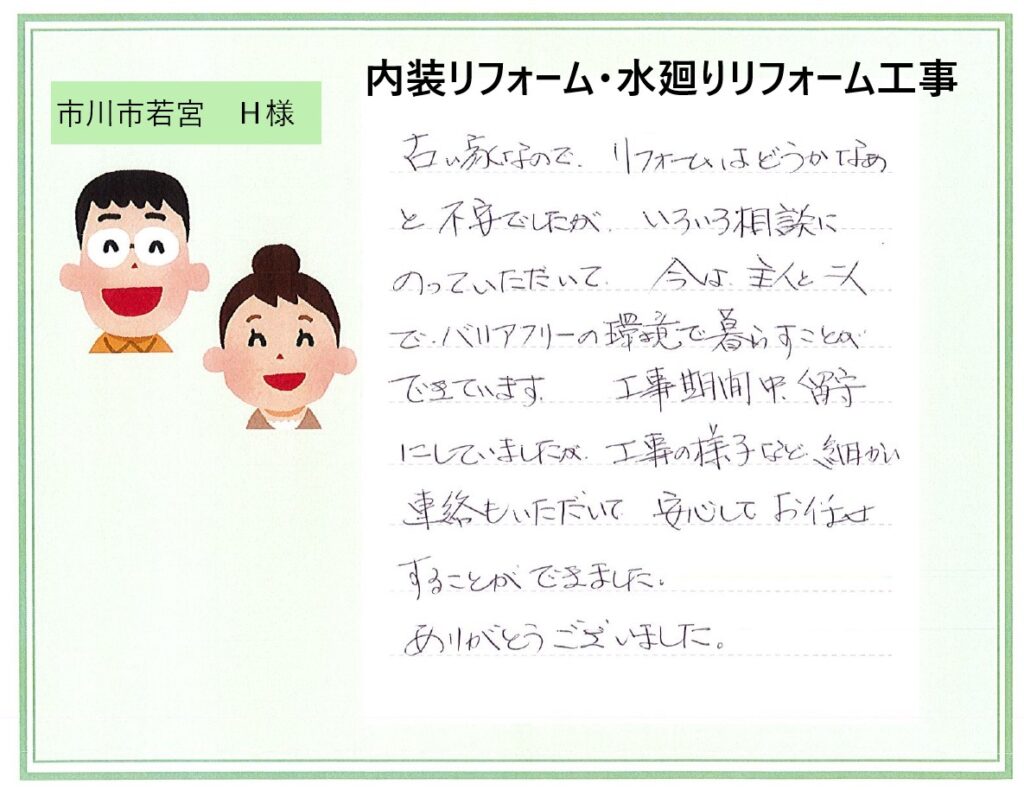 内装リフォーム・水廻りリフォーム工事
市川市若宮　H様
古い家なので、リフォームはどうかなあ
と不安でしたが、いろいろ相談に
のっていただいて、今は、主人と二人
で、バリアフリーの環境で暮らすことが
できています。　工事期間中、留守
にしていましたが、工事の様子など、細かい
連絡もいただいて　安心して　お任せ
することが　できました。
ありがとうございました。